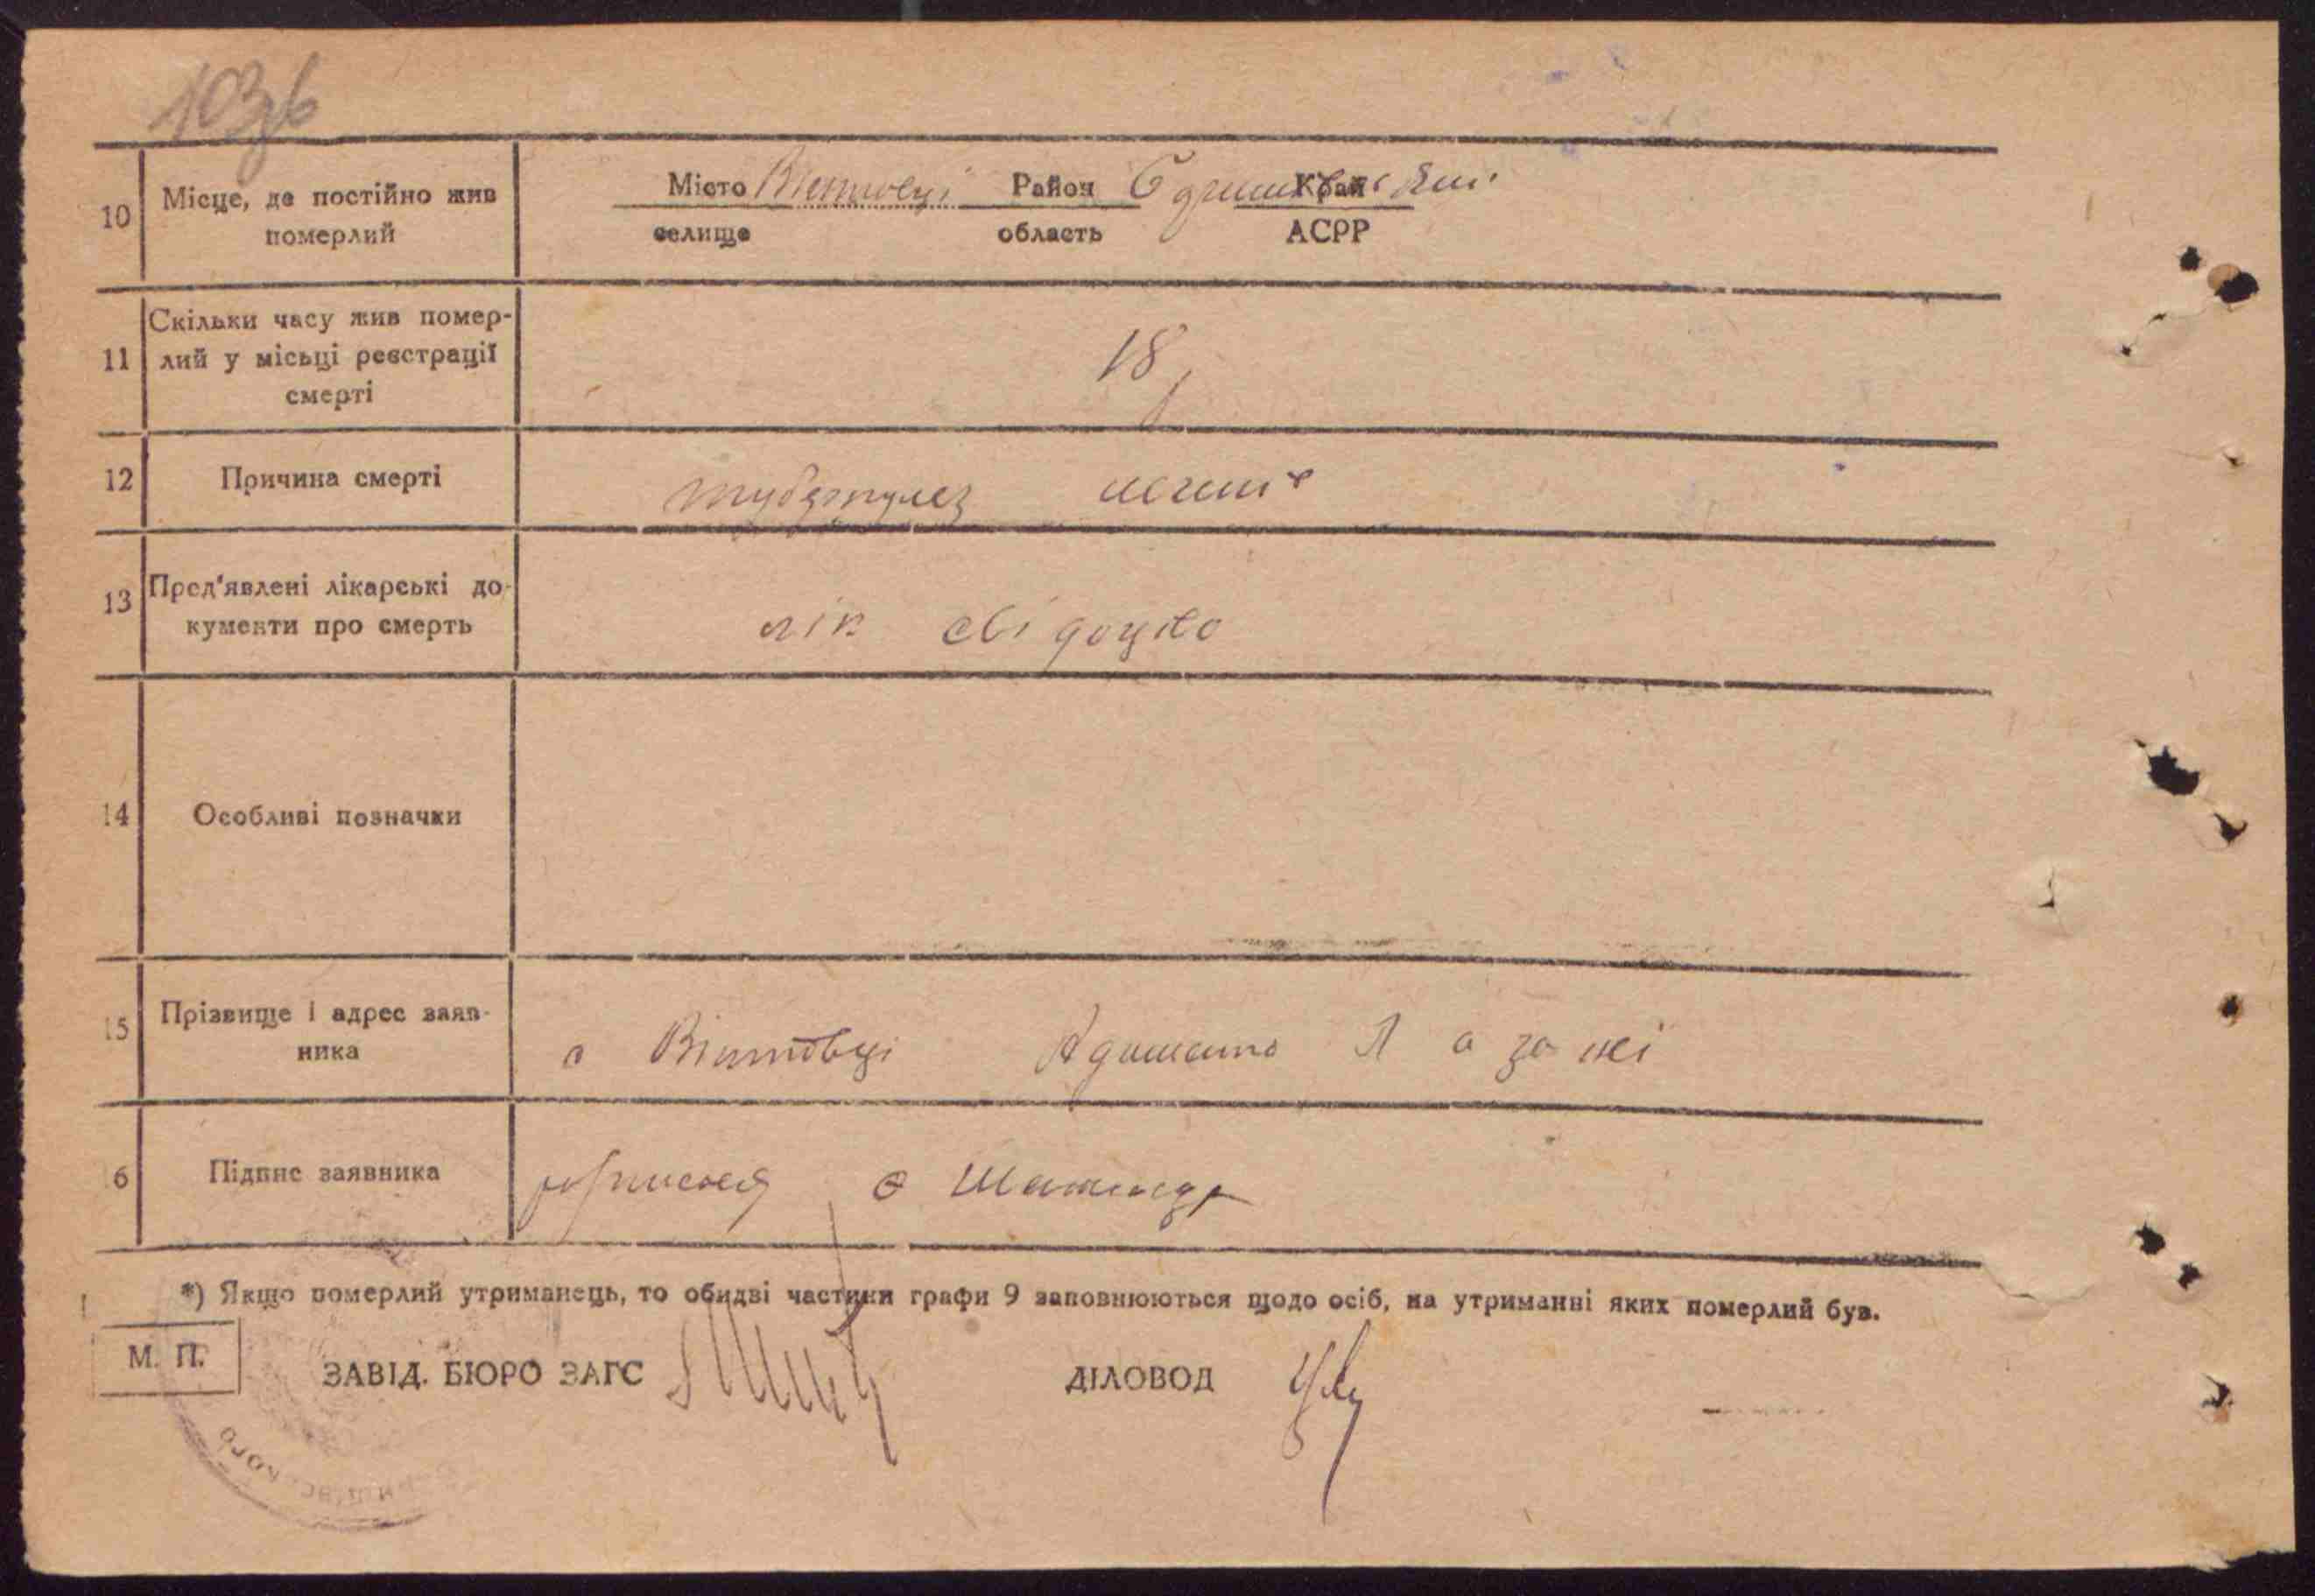 103зв
10 Місце, де постійно жив померлий
Місто Вітовці Район Ярминський Край
селище область АСРР
11 Скільки часу жив помер-
лий у місьці реєстрації
смерті
18 р
12 Причина смерті туберкулез легенів
13 Пред'явлені лікарські до-
кументи про смерть
лік свідоцтво
14 Особливі позначки
15 Прізвище і адрес заяв-
ника
с Вітовці Л а за неї
16 Підпис заявника
*) Якщо померлий утриманець, то обидві частини графи 9 заповнюються щодо осіб, на утриманні яких померлий був.
М. П.
ЗАВІД. БЮРО ЗАГС ДІЛОВОД